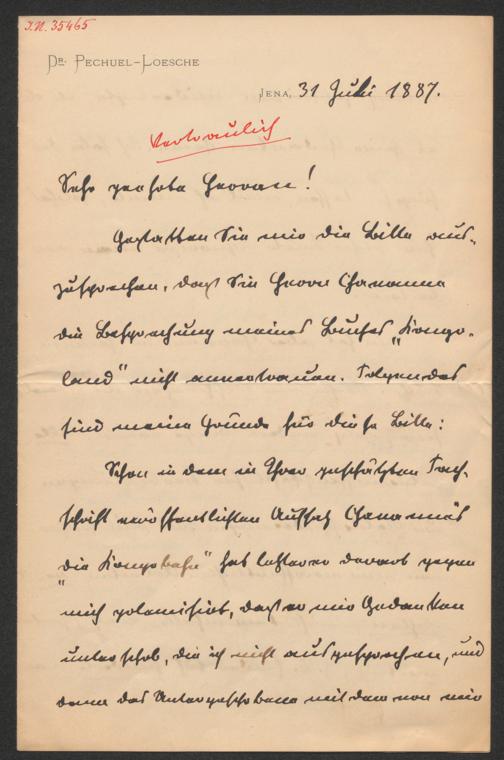 J.N. 35465
DR. PECHUEL-LOESCHE
JENA, 31 Juli 1887.
Vertraulich
Sehr geehrte Herren!
Gestatten Sie mir die Bitte aus-
zusprechen, daß Sie Herrn Chavanne
die Besprechung meines Buches „Kongo-
land" nicht anvertrauen. Folgendes
sind meine Gründe für diese Bitte:
Schon in dem in Ihrer geschätzten Zeit-
schrift veröffentlichten Aufsatz Chavannes
„die Kongobahn" hat letzterer derart gegen
mich polemisirt, daß er mir Gedanken
unterschob, die ich nicht ausgesprochen, und
dann das Untergeschobene mit dem von mir